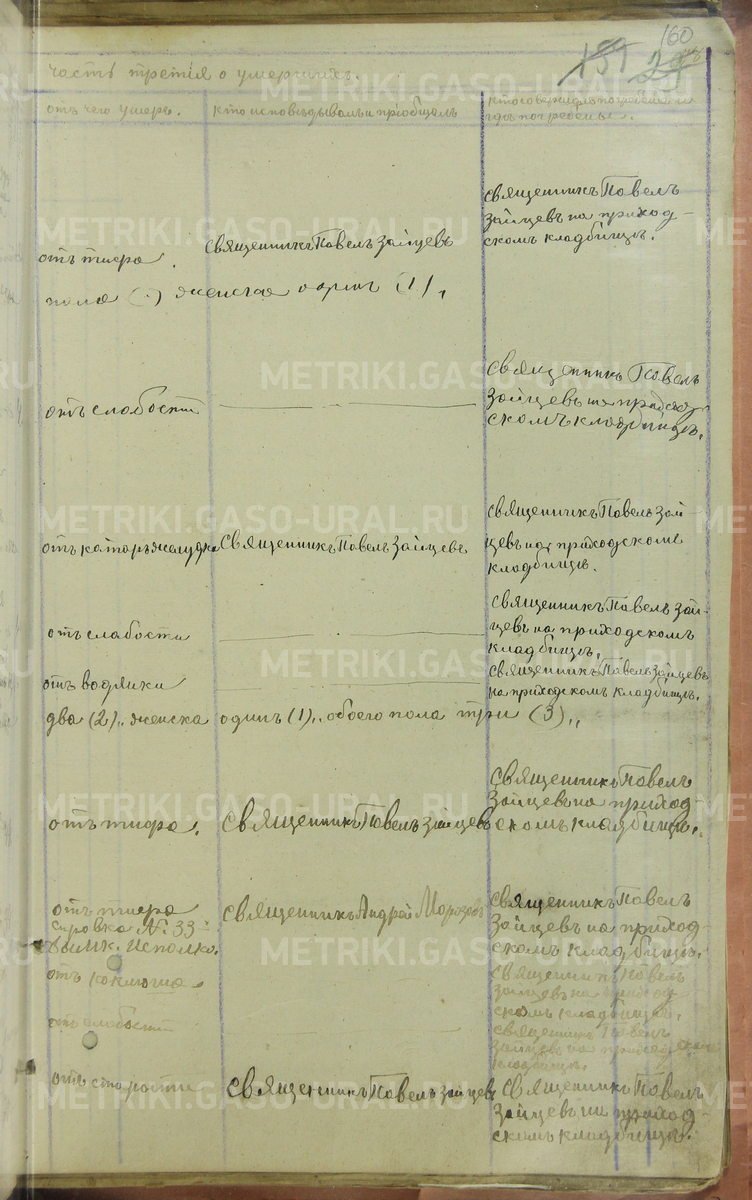 160
часть третія о умершихъ.
отъ чего умеръ.
кто исповѣдывалъ и пріобщалъ
кто совершалъ погребеніе и
гдѣ погребены.
священникъ Павелъ
Зайцевъ на приход-
скомъ кладбищѣ.
отъ тифа.
священникъ Павелъ Зайцевъ
пола (.) женска одинъ (1).
священникъ Павелъ
Зайцевъ на приход-
скомъ кладбищѣ.
отъ слабости
священникъ Павелъ Зай-
цевъ на приходскомъ
кладбищѣ.
отъ катаръ желудка
священникъ Павелъ Зайцевъ
священникъ Павелъ Зай-
цевъ на приходскомъ
кладбищѣ.
отъ слабости
отъ водянки
священникъ Павелъ Зайцевъ
на приходскомъ кладбищѣ.
два (2),, женска одинъ (1),, обоего пола три (3),,
священникъ Павелъ
Зайцевъ на приход-
скомъ кладбищѣ.
отъ тифа.
священникъ Павелъ Зайцевъ
отъ тифа
справка № 33
исполко.
священникъ Андрей Морозовъ
священникъ Павелъ
Зайцевъ на приход-
скомъ кладбищѣ.
отъ коклюша
священникъ Павелъ
Зайцевъ на приход-
скомъ кладбищѣ.
отъ слабости
священникъ Павелъ
Зайцевъ на приходскомъ
кладбищѣ.
отъ старости
священникъ Павелъ Зайцевъ
священникъ Павелъ
Зайцевъ на приход-
скомъ кладбищѣ.
METRIKI.GASO-URAL.RU